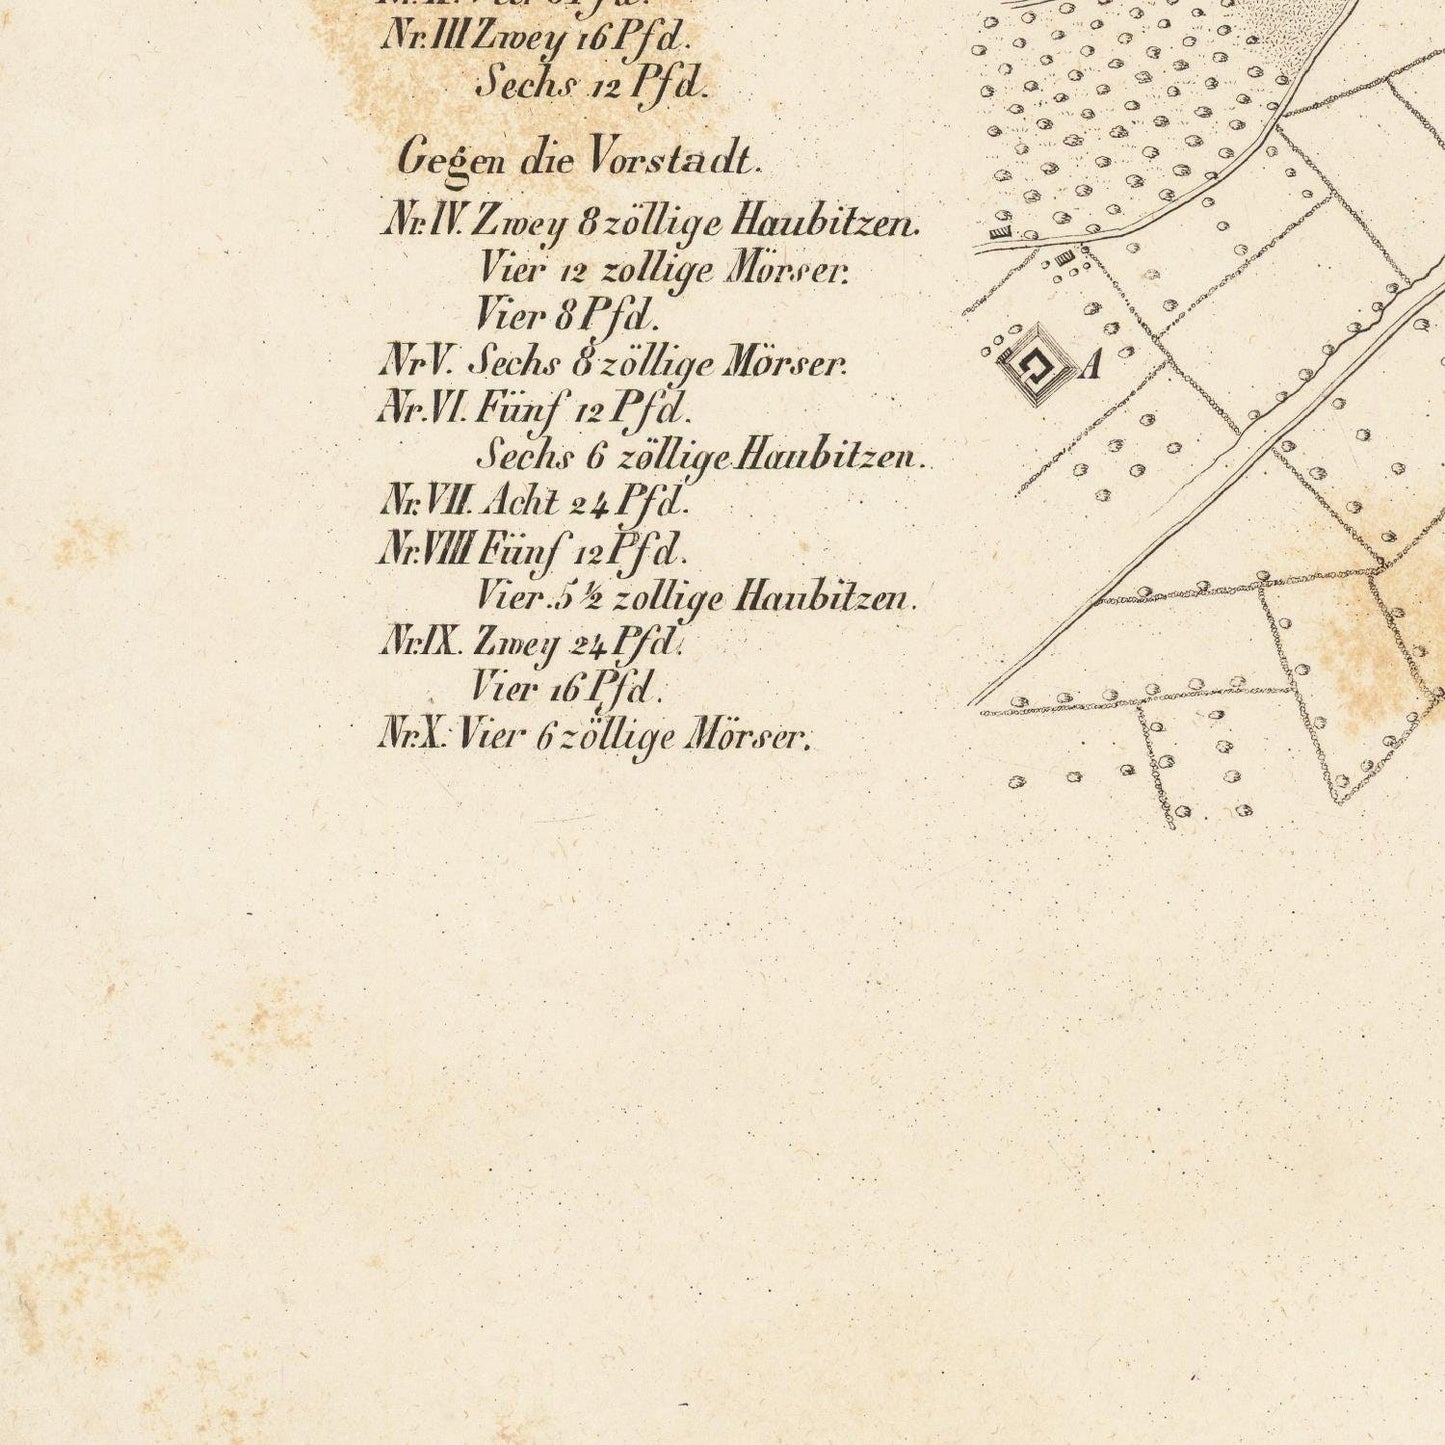 Nr.III Zwey 16 Pfd.
Sechs 12 Pfd.
Gegen die Vorstadt.
Nr.IV. Zwey 8 zöllige Haubitzen.
Vier 12 zollige Mörser.
Vier 8 Pfd.
Nr V. Sechs 8 zöllige Mörser.
Nr.VI. Fünf 12 Pfd.
Sechs 6 zöllige Haubitzen.
Nr.VII. Acht 24 Pfd.
Nr.VIII Fünf 12 Pfd.
Vier 5 ½ zollige Haubitzen.
Nr.IX. Zwey 24 Pfd.
Vier 16 Pfd.
Nr.X. Vier 6 zöllige Mörser.
A